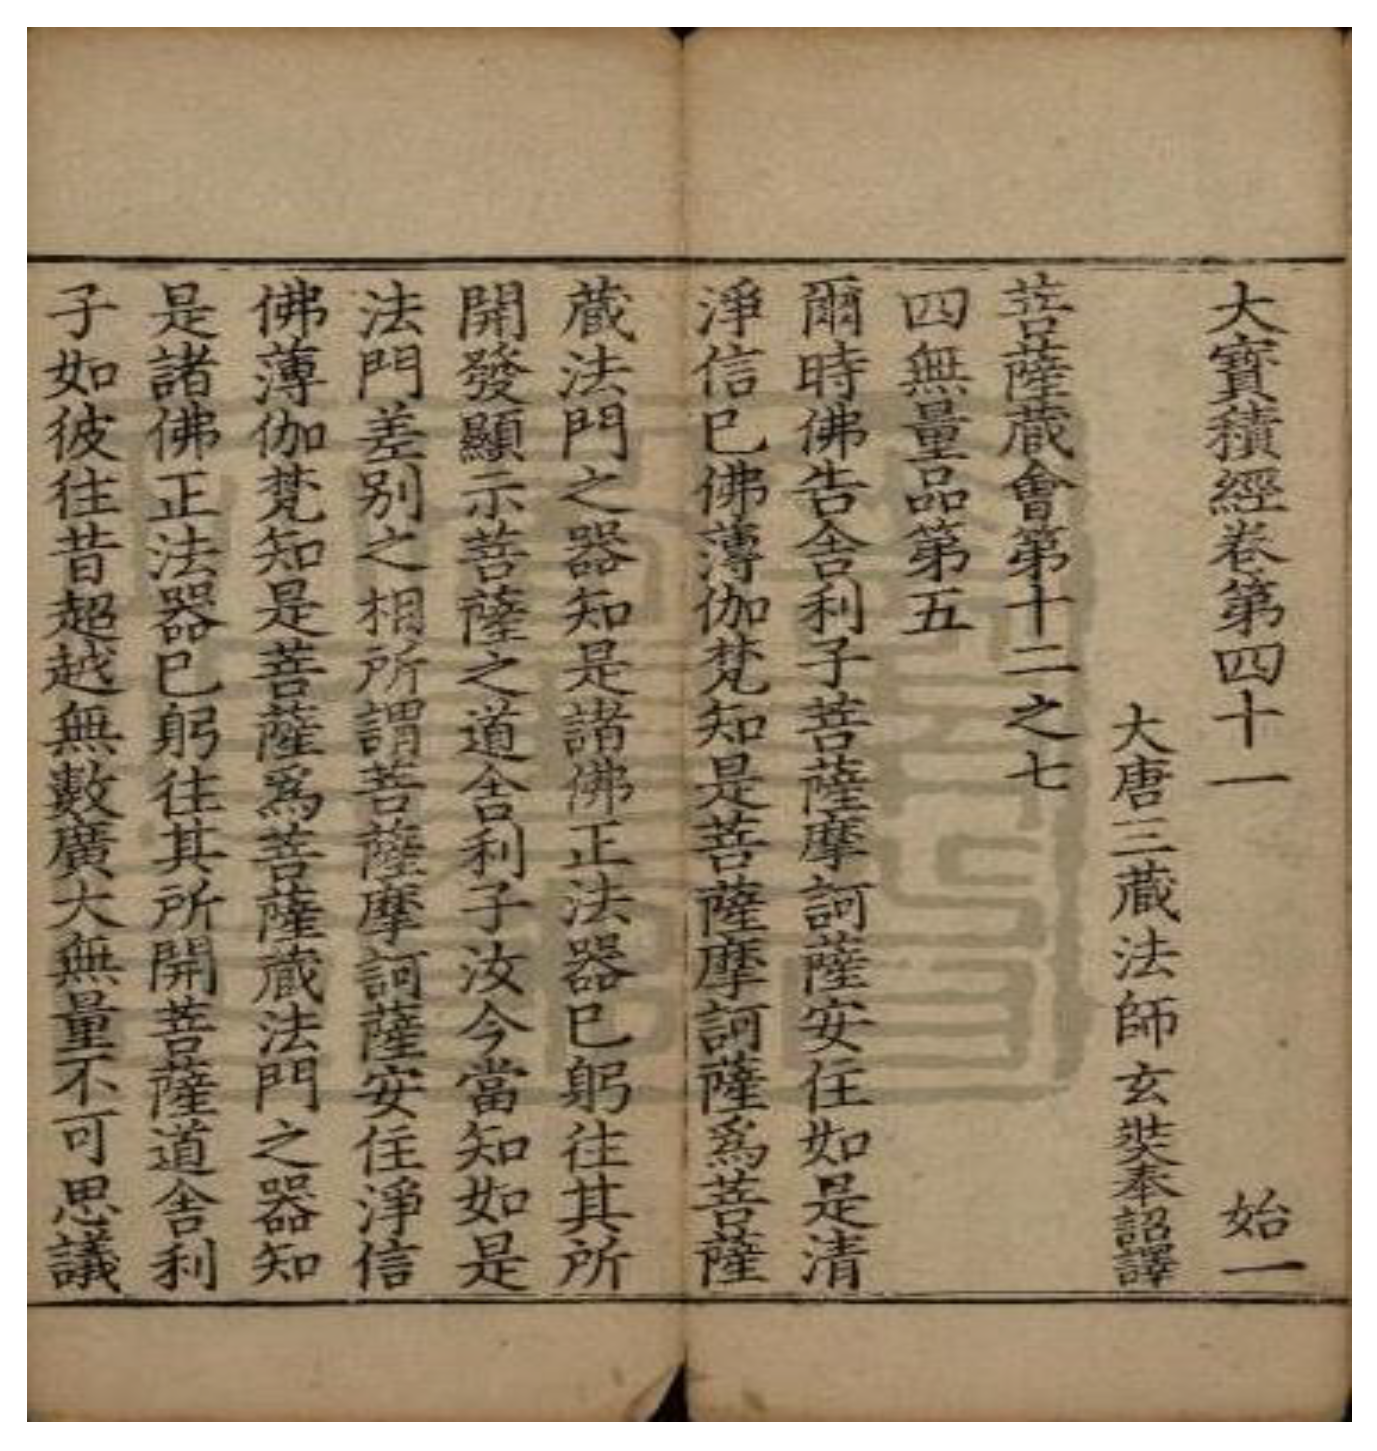 大寶積經卷第四十一 始一
大唐三藏法師玄奘奉詔譯
菩薩藏會第十二之七
四無量品第五
爾時佛告舍利子菩薩摩訶薩安住如是清
淨信已佛薄伽梵知是菩薩摩訶薩爲菩薩
藏法門之器知是諸佛正法器已躬往其所
開發顯示菩薩之道舍利子汝今當知如是
法門差別之相所謂菩薩摩訶薩安住淨信
佛薄伽梵知是菩薩爲菩薩藏法門之器知
是諸佛正法器已躬往其所開菩薩道舍利
子如彼往昔超越無數廣大無量不可思議